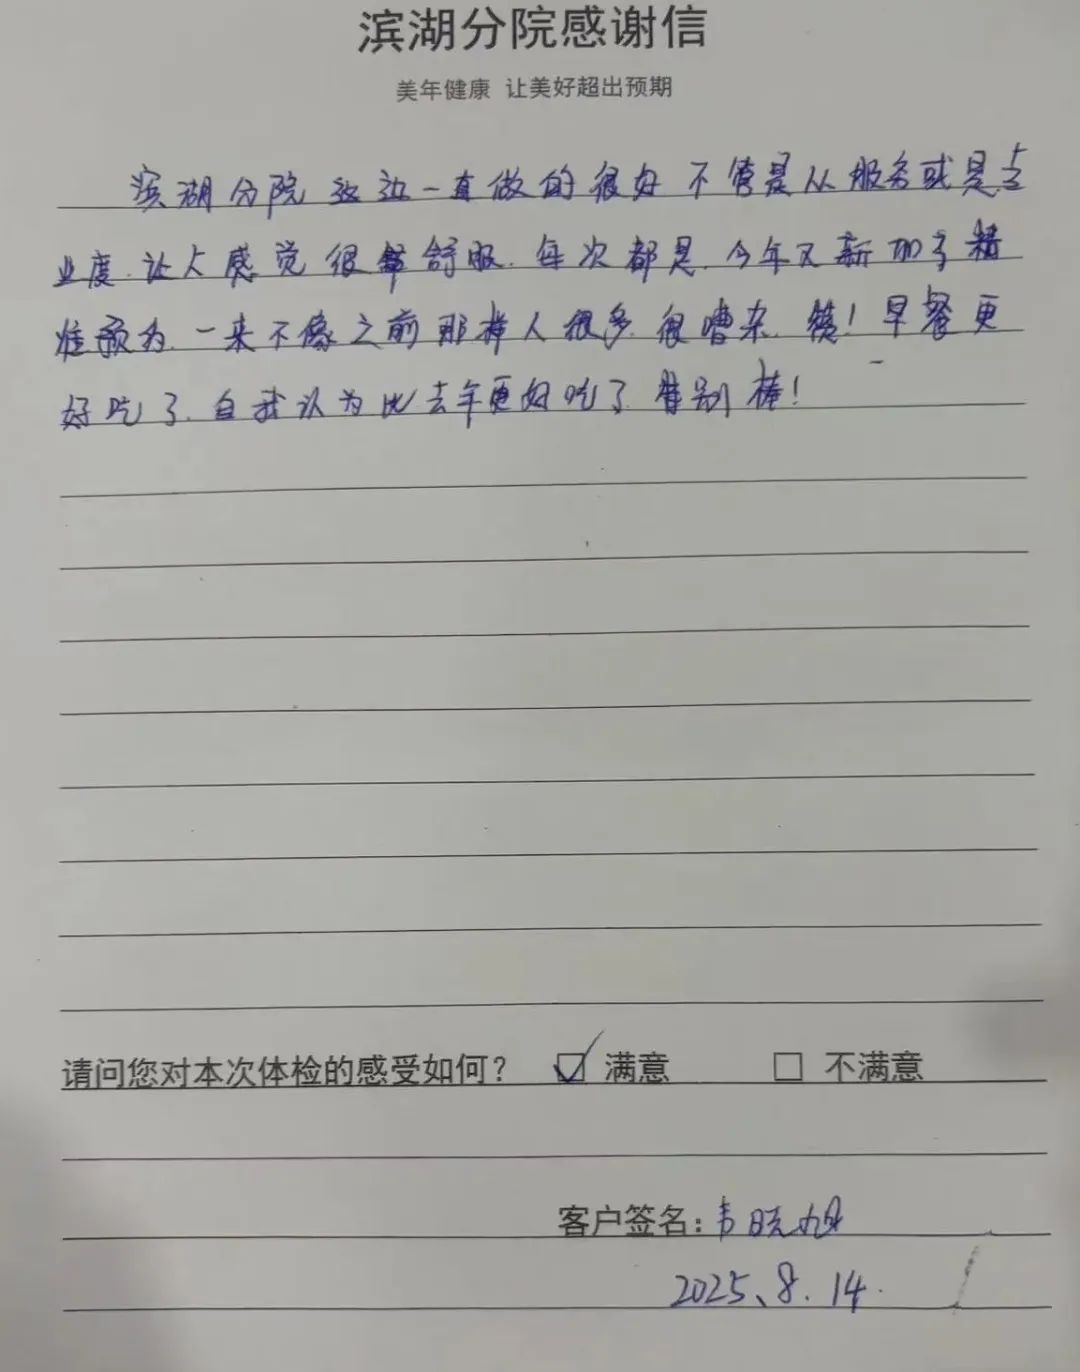 滨湖分院感谢信
美年健康 让美好超出预期
滨湖分院这边一直做的很好 不管是从服务或是专
业度.让人感觉很舒服.每次都是.今年又新加了精
准预为.一来不像之前那样人很多.很嘈杂.赞!早餐更
好吃了.自我认为比去年更好吃了.特别棒!
请问您对本次体检的感受如何? ☑ 满意 □ 不满意
客户签名:韦晓旭
2025、8.14.